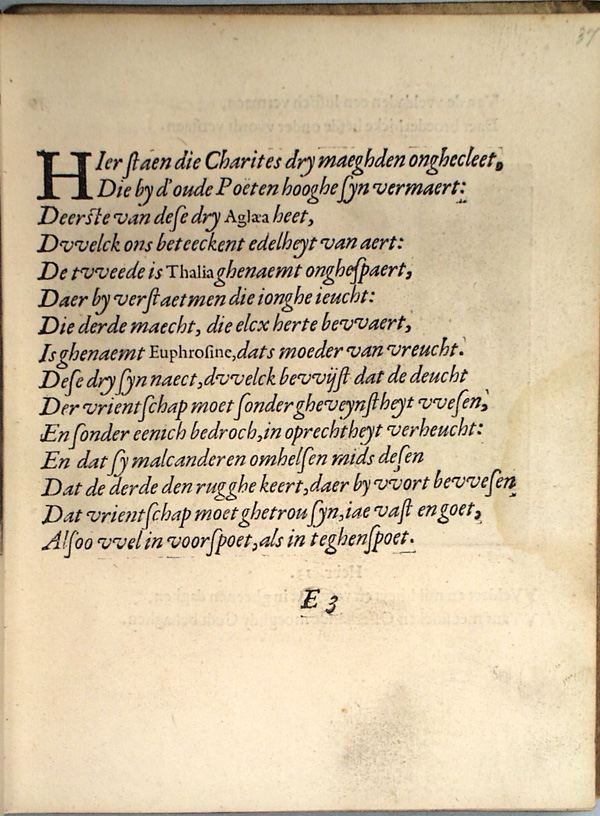 37
HIer ſtaen die Charites dry maeghden onghecleet,
Die by d'oude Poëten hooghe ſyn vermaert:
Deerſte van deſe dry Aglæa heet,
Dvvelck ons beteeckent edelheyt van aert:
De tvveede is Thalia ghenaemt ongheſpaert,
Daer by verſtaetmen die ionghe ieucht:
Die derde maecht, die elcx herte bevvaert,
Is ghenaemt Euphroſine, dats moeder van vreucht.
Deſe dry ſyn naect, dvvelck bevvijſt dat de deucht
Der vrientſchap moet ſonder gheveynſtheyt vveſen,
En ſonder eenich bedroch, in oprechtheyt verheucht:
En dat ſy malcanderen omhelſen mids deſen
Dat de derde den rugghe keert, daer by vvort bevveſen
Dat vrientſchap moet ghetrou ſyn, iae vaſt en goet,
Alſoo vvel in voorſpoet, als in teghenſpoet.
E 3